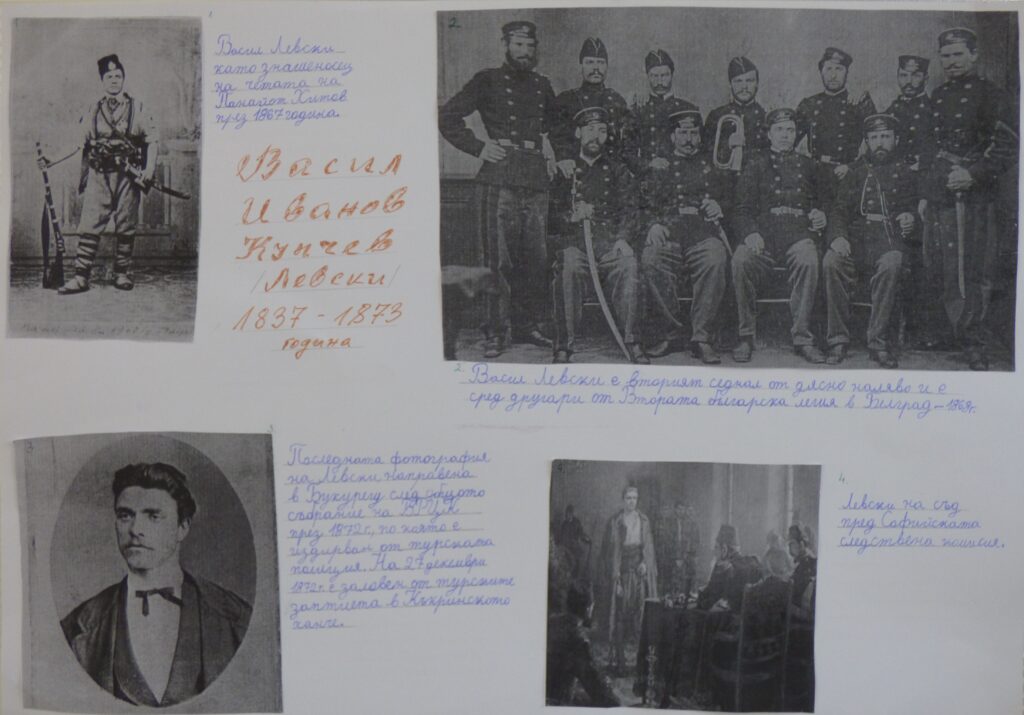 1.
Васил Левски
като знаменосец
на четата на
Панайот Хитов
през 1867 година.
Васил
Иванов
Кунчев
/Левски/
1837 - 1873
година
2.
2. Васил Левски е вторият седнал от дясно наляво и е
сред другари от Втората българска легия в Белград - 1868г.
3.
Последната фотография
на Левски направена
в Букурещ след общото
събрание на БРЦК
през 1872 г., по която е
издирван от турската
полиция. На 27 декември
1872 г. е заловен от турските
заптиета в Къкринското
ханче.
4.
Левски на съд
пред Софийската
следствена комисия.